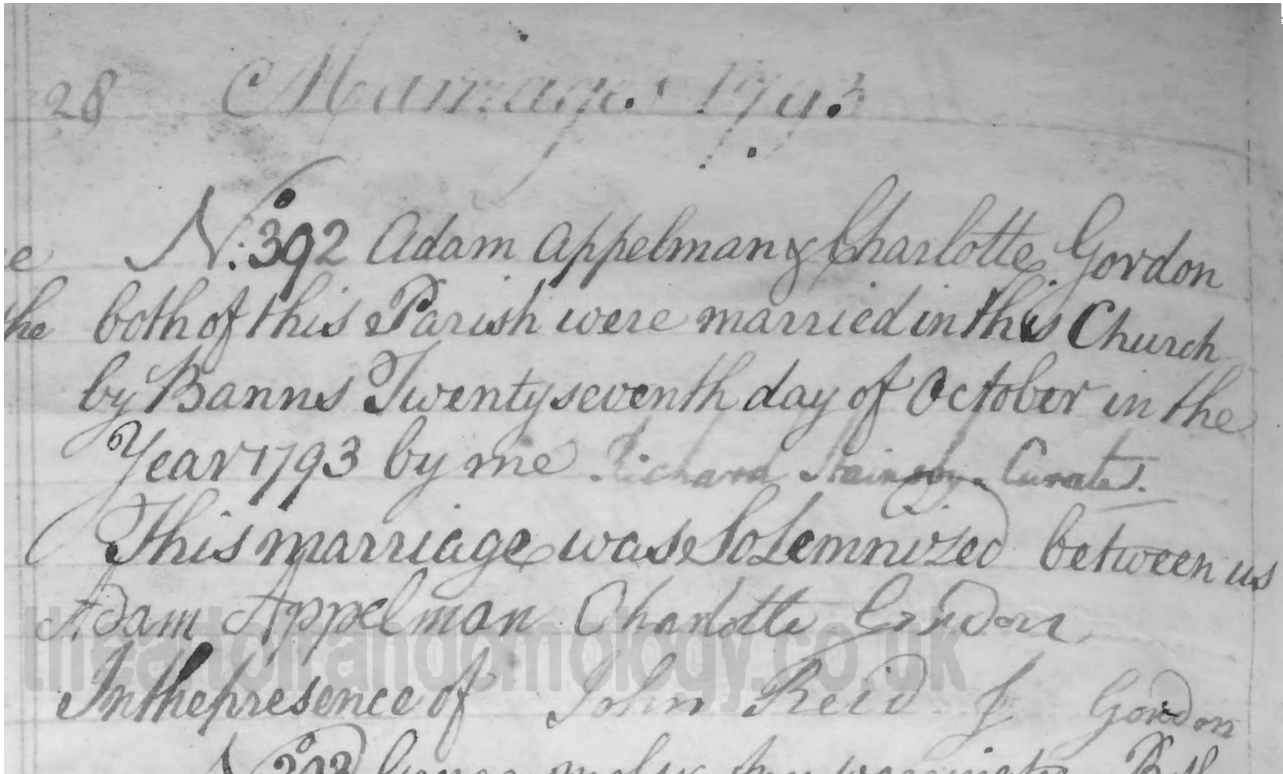 28 Marriages 1793
No: 392 Adam Appelman & Charlotte Gordon
e
both of this Parish were married in this Church
the
by Banns Twenty seventh day of October in the
Year 1793 by me Richard Stainsby Curate.
This marriage was Solemnized between us
Adam Appelman Charlotte Gordon
theartofrandomology.co.uk
In the presence of John Reid J Gordon
No 393